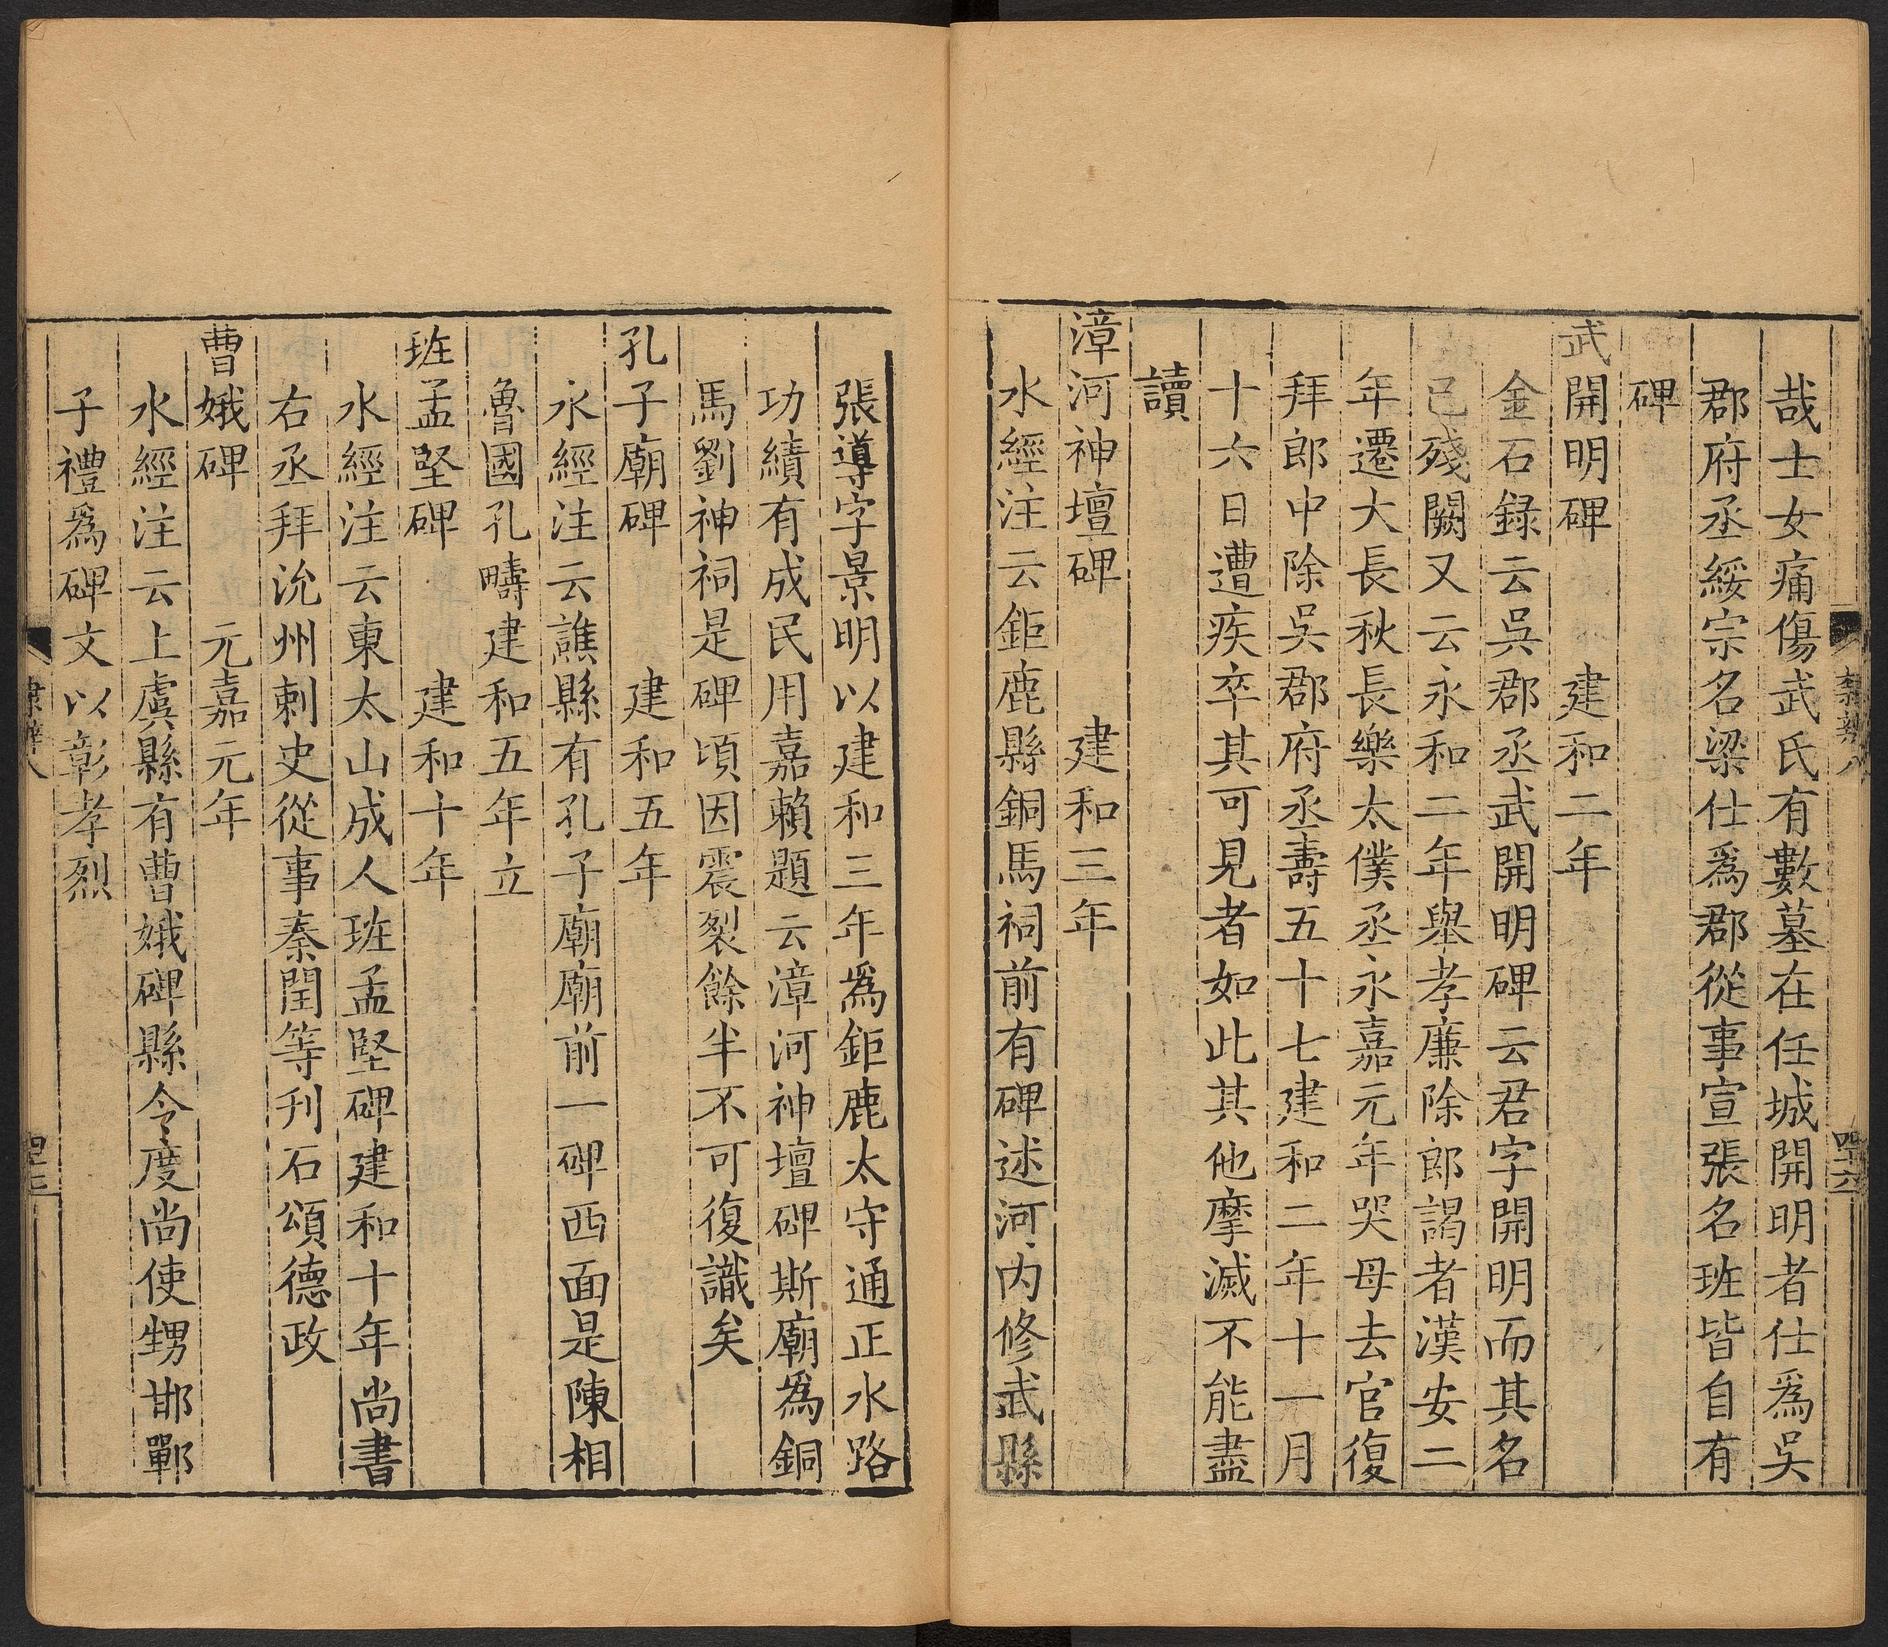 哉士女痛傷武氏有數墓在任城開明者仕爲吳
郡府丞綏宗名梁仕爲郡從事宣張名班皆自有
碑
武開明碑 建和二年
金石録云吳郡丞武開明碑云君字開明而其名
已殘闕又云永和二年舉孝廉除郎謁者漢安二
年遷大長秋長樂太僕丞永嘉元年哭母去官復
拜郎中除吳郡府丞壽五十七建和二年十一月
十六日遭疾卒其可見者如此其他摩滅不能盡
讀
漳河神壇碑 建和三年
水經注云鉅鹿縣銅馬祠前有碑述河內修武縣
張導字景明以建和三年爲鉅鹿太守通正水路
功績有成民用嘉賴題云漳河神壇碑斯廟爲銅
馬劉神祠是碑頃因震裂餘半不可復識矣
孔子廟碑 建和五年
水經注云譙縣有孔子廟廟前一碑西面是陳相
魯國孔疇建和五年立
班孟堅碑 建和十年
水經注云東太山成人班孟堅碑建和十年尚書
右丞拜沇州刺史從事秦閏等刊石頌德政
曹娥碑 元嘉元年
水經注云上虞縣有曹娥碑縣令度尚使甥邯鄲
子禮爲碑文以彰孝烈